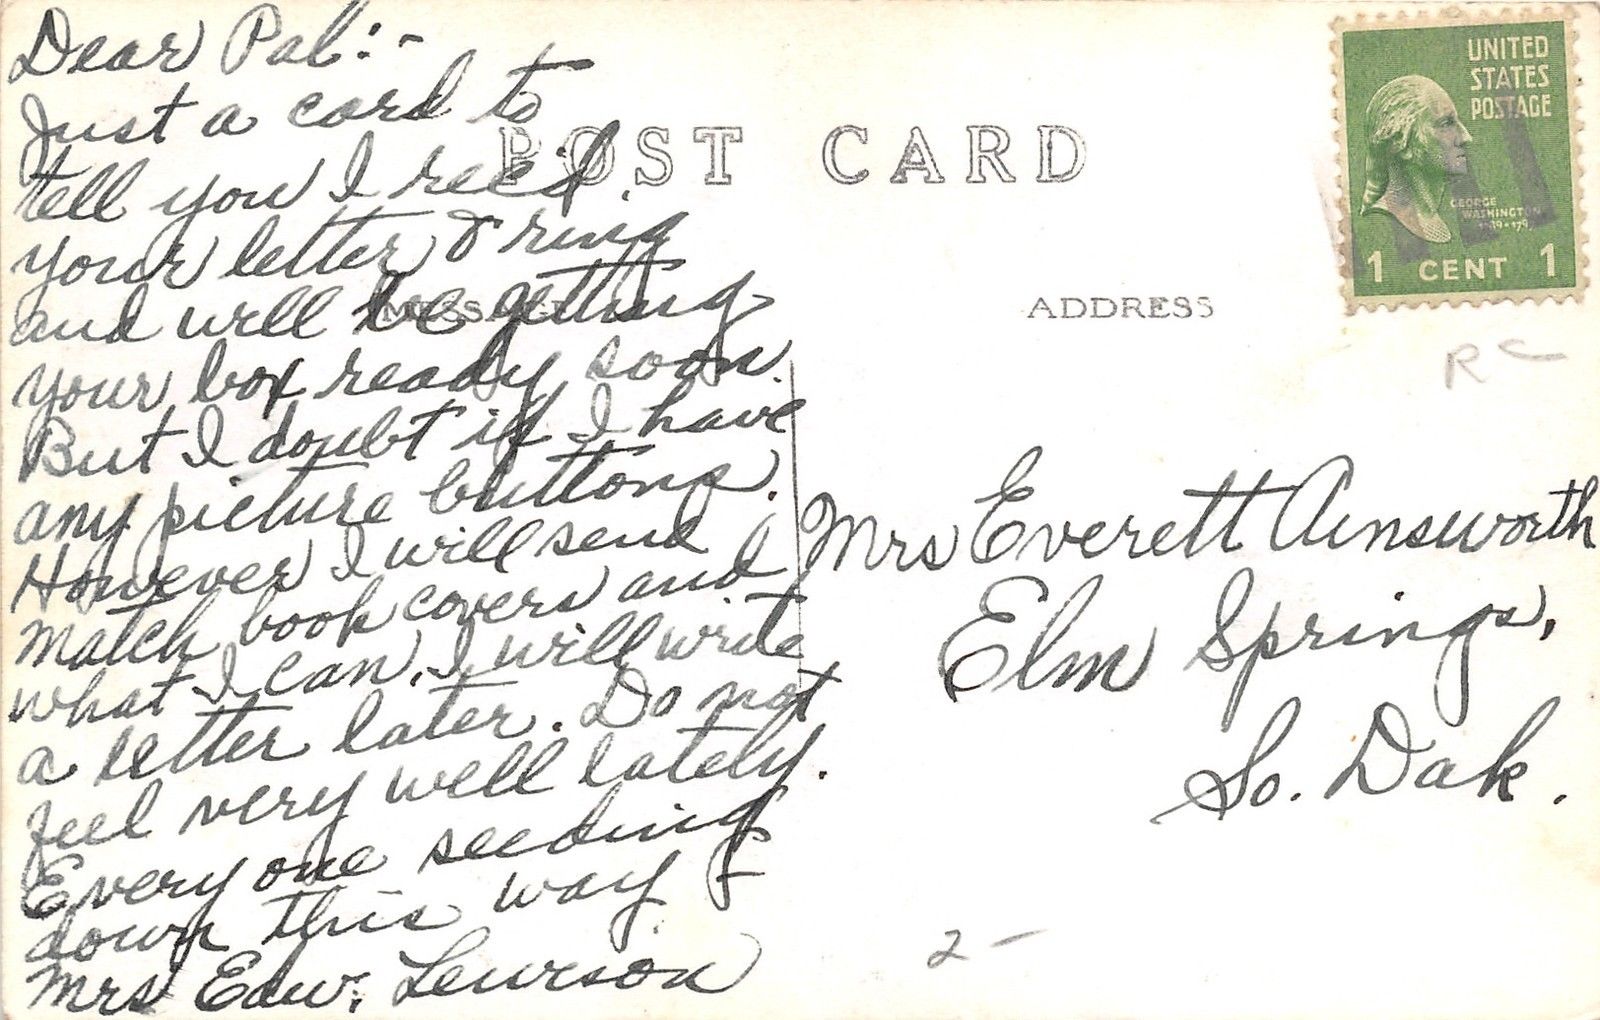 Dear Pal:-
Just a card to
tell you I rec'd.
your letter & ring
and will be getting
your box ready soon.
But I doubt if I have
any picture buttons.
However I will send
match book covers and
what I can. I will write
a letter later. Do not
feel very well lately.
Every one seeding
down this way -
Mrs Edw. Lewison
POST CARD
MESSAGE
ADDRESS
UNITED
STATES
POSTAGE
GEORGE
WASHINGTON
1 CENT 1
RC
Mrs Everett Ainsworth
Elm Springs,
So. Dak.
2-